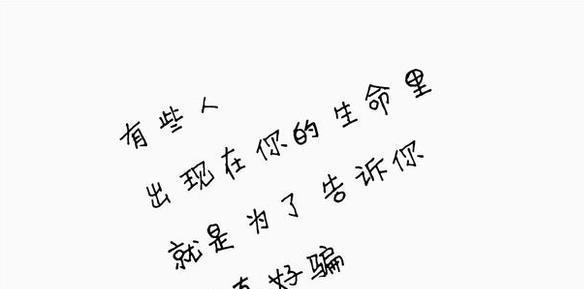 有些人
出现在你的生命里
就是为了告诉你
真好骗